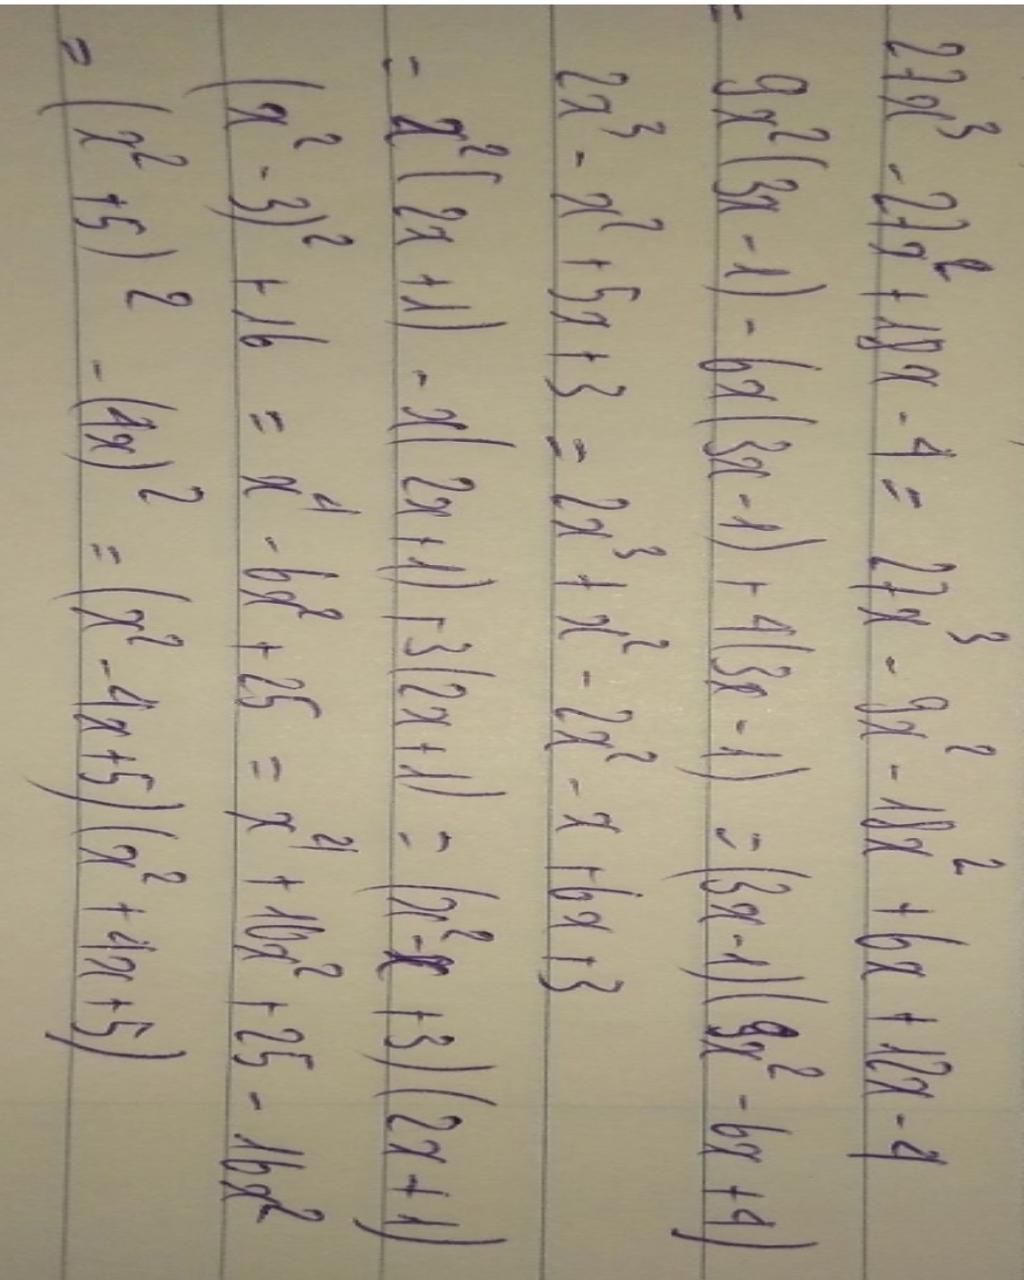 27x³ - 27x² + 18x - 4 = 27x³ - 9x² - 18x² + 6x + 12x - 4
= 9x²(3x - 1) - 6x(3x - 1) + 4(3x - 1) = (3x - 1)(9x² - 6x + 4)
2x³ - x² + 5x + 3 = 2x³ + x² - 2x² - x + 6x + 3
= x²(2x + 1) - x(2x + 1) + 3(2x + 1) = (x² - x + 3)(2x + 1)
(x² - 3)² + 16 = x⁴ - 6x² + 25 = x⁴ + 10x² + 25 - 16x²
= (x² + 5)² - (4x)² = (x² - 4x + 5)(x² + 4x + 5)